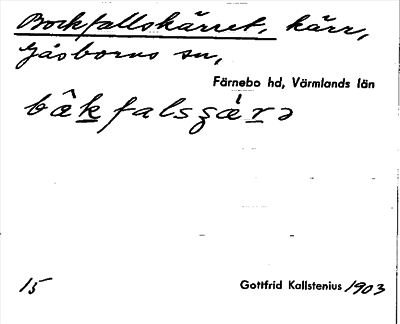 Bockfallskärret, kärr,
Gåsborns sn,
Färnebo hd, Värmlands län
bæ̂kfalsʂæ̀rə
15
Gottfrid Kallstenius 1903